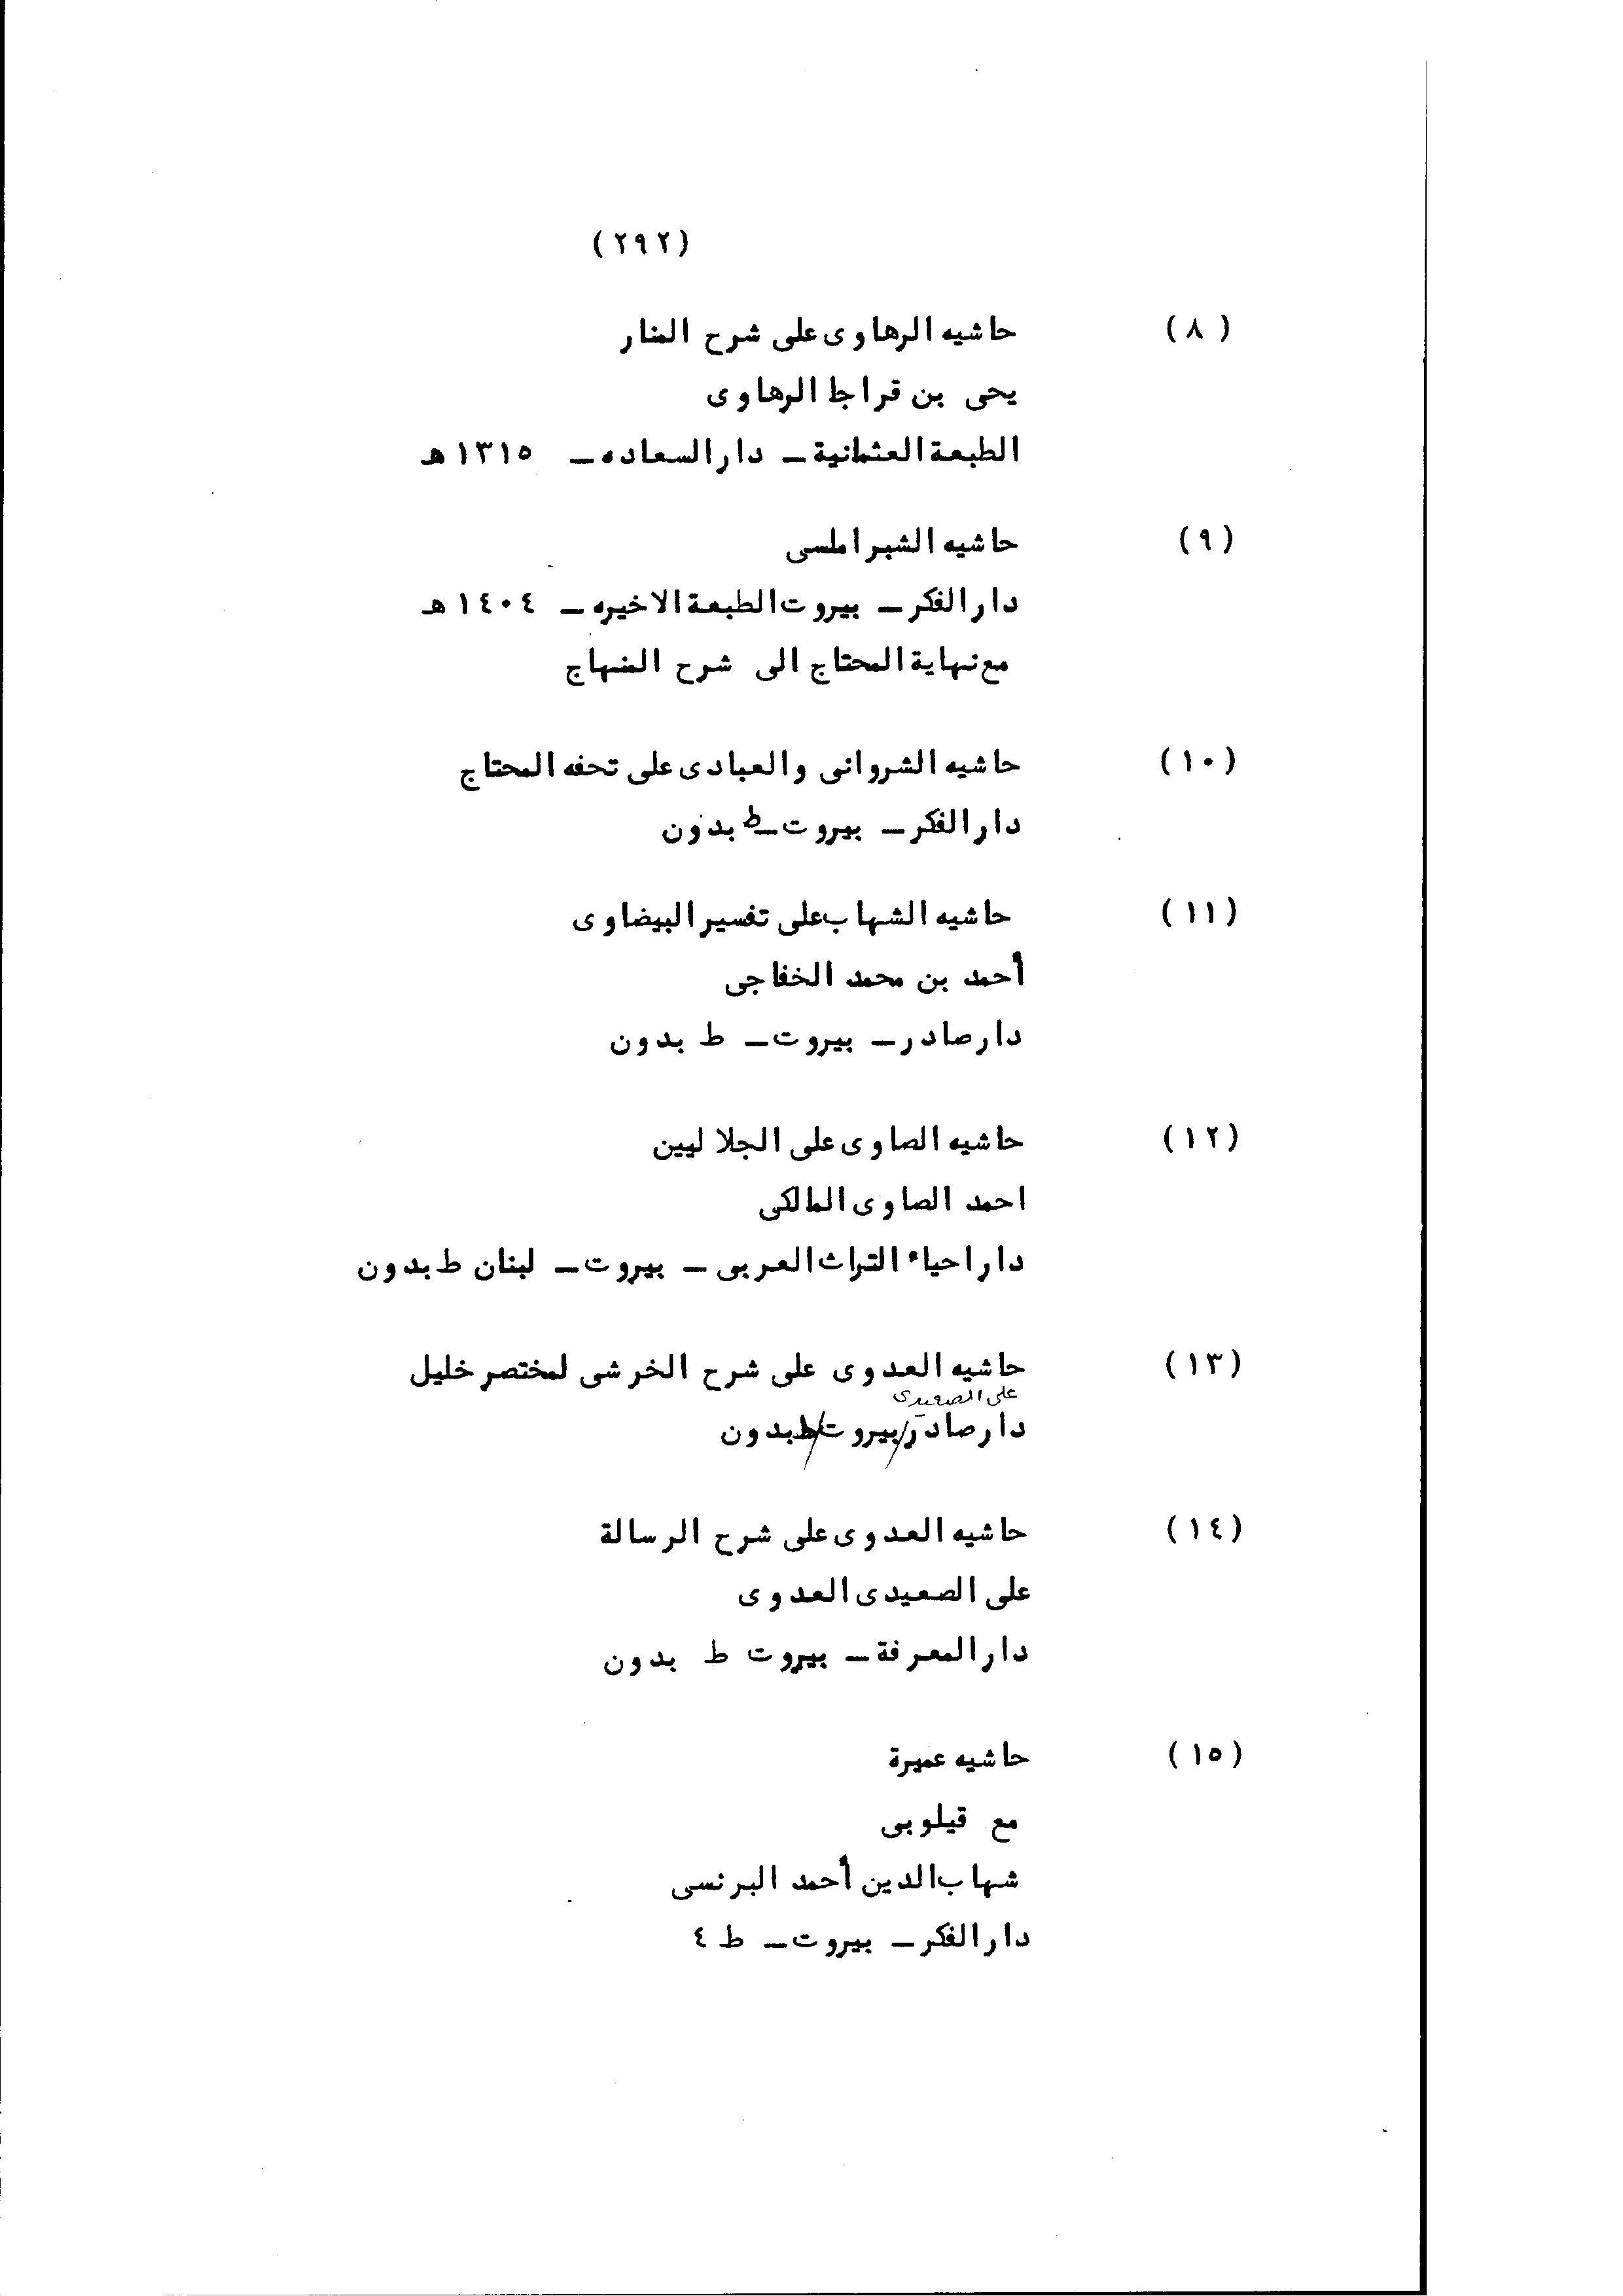 (٢٩٢)
(٨) حاشيه الرهاوى على شرح المنار
يحى بن قراجا الرهاوى
الطبعة العثمانية ــ دار السعاده ــ ١٣١٥ هـ
(٩) حاشيه الشبراملسى
دار الفكر ــ بيروت الطبعة الاخيره ــ ١٤٠٤ هـ
مع نهاية المحتاج الى شرح المنهاج
(١٠) حاشيه الشروانى والعبادى على تحفه المحتاج
دار الفكر ــ بيروت ــ ط بدون
(١١) حاشيه الشهاب على تفسير البيضاوى
أحمد بن محمد الخفاجى
دار صادر ــ بيروت ــ ط بدون
(١٢) حاشيه الصاوى على الجلاليين
احمد الصاوى المالكى
دار احياء التراث العربى ــ بيروت ــ لبنان ط بدون
(١٣) حاشيه العدوى على شرح الخرشى لمختصر خليل
على الصعيدى
دار صادر/بيروت/ط بدون
(١٤) حاشيه العدوى على شرح الرسالة
على الصعيدى العدوى
دار المعرفة ــ بيروت ط بدون
(١٥) حاشيه عميرة
مع قيلوبى
شهاب الدين أحمد البرنسى
دار الفكر ــ بيروت ــ ط ٤